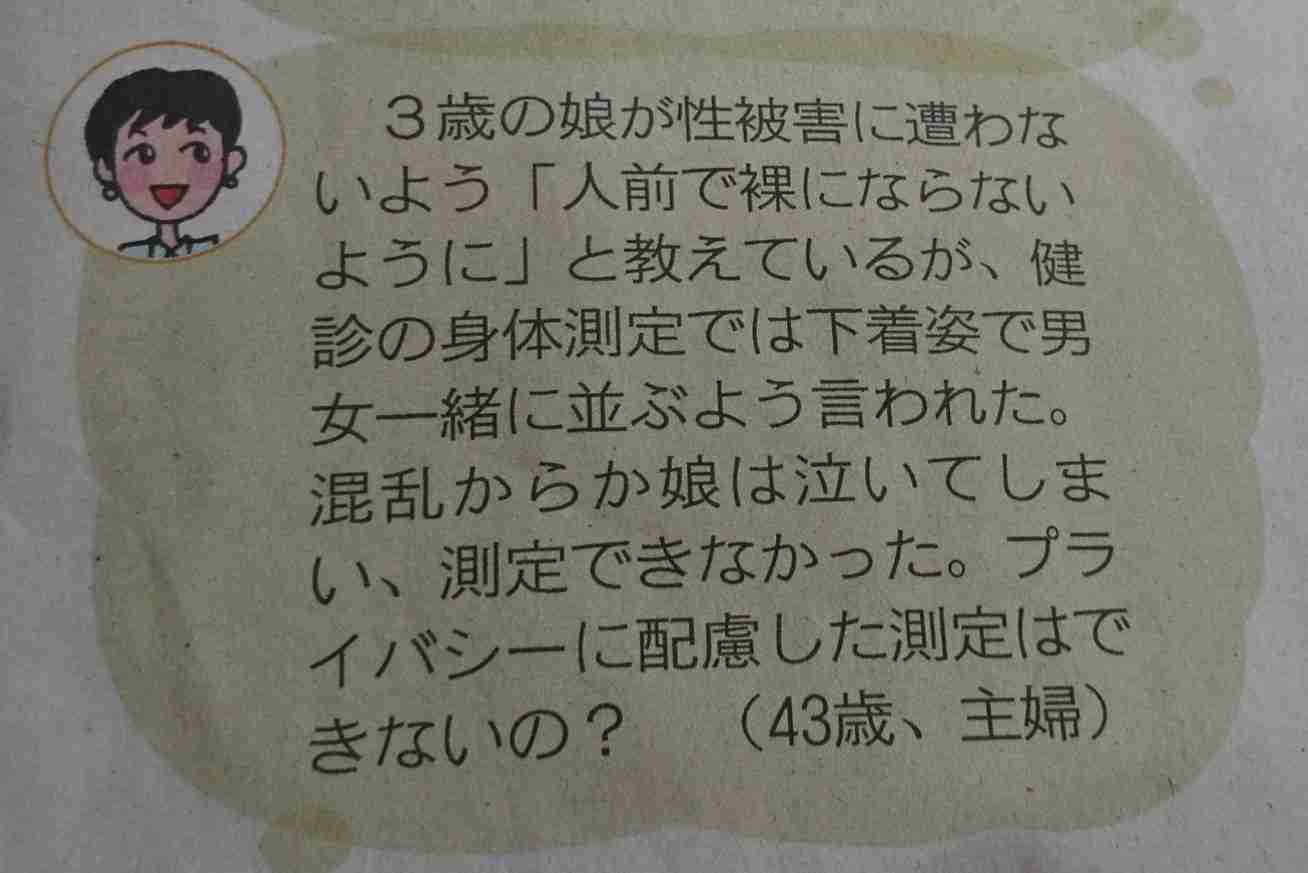 ３歳の娘が性被害に遭わな
いよう「人前で裸にならない
ように」と教えているが、健
診の身体測定では下着姿で男
女一緒に並ぶよう言われた。
混乱からか娘は泣いてしま
い、測定できなかった。プラ
イバシーに配慮した測定はで
きないの？　（43歳、主婦）